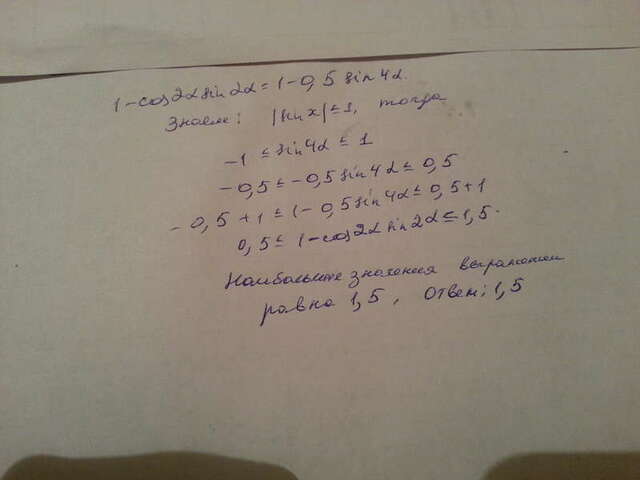 1-cos2α sin2α = 1-0,5 sin4α.
Знаем: |sin x| ≤ 1, тогда
-1 ≤ sin4α ≤ 1
-0,5 ≤ -0,5 sin4α ≤ 0,5
-0,5+1 ≤ 1-0,5 sin4α ≤ 0,5+1
0,5 ≤ 1-cos2α sin2α ≤ 1,5.
Наибольшее значения выражения
равно 1,5, Ответ: 1,5